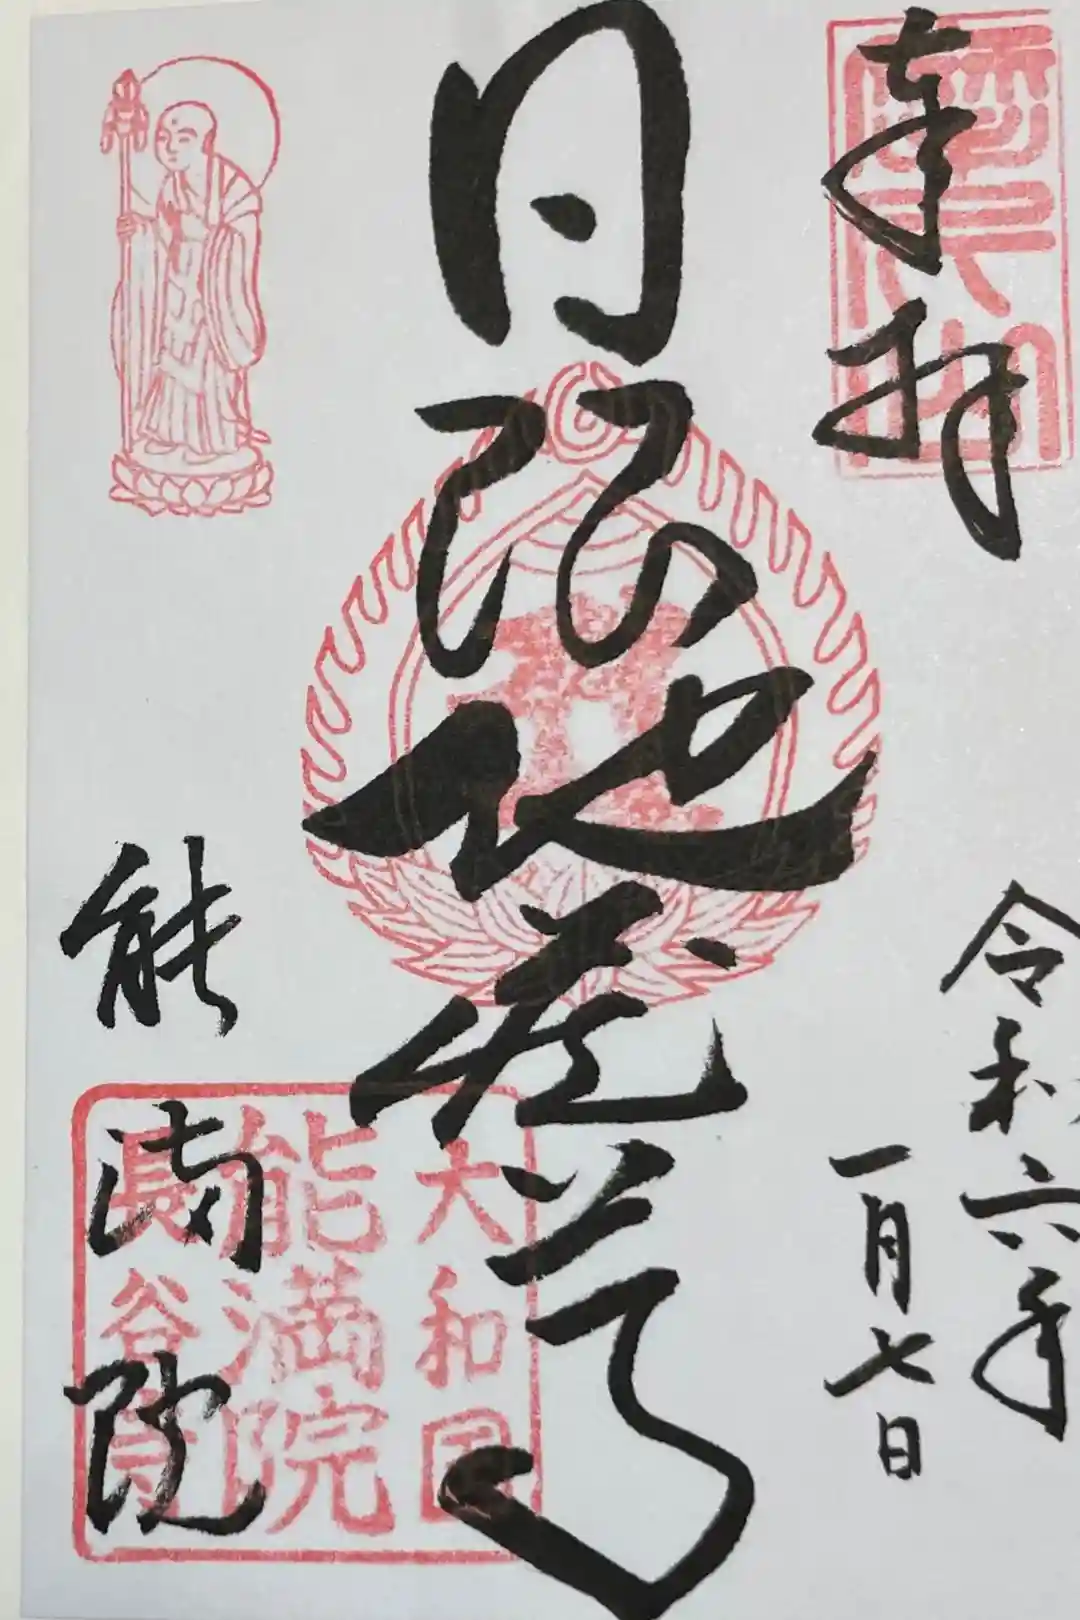 奉拝
令和六年
一月七日
日限地蔵尊
能満院
大和国
能満院
長谷寺